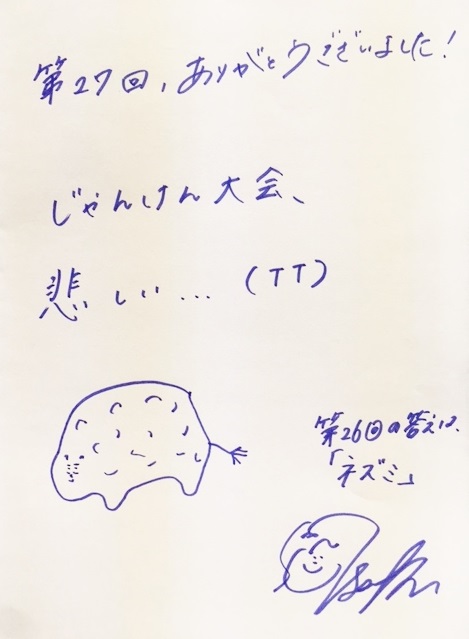 第27回、ありがとうございました!
じゃんけん大会、
悲しい…(TT)
第26回の答えは、
「ネズミ」